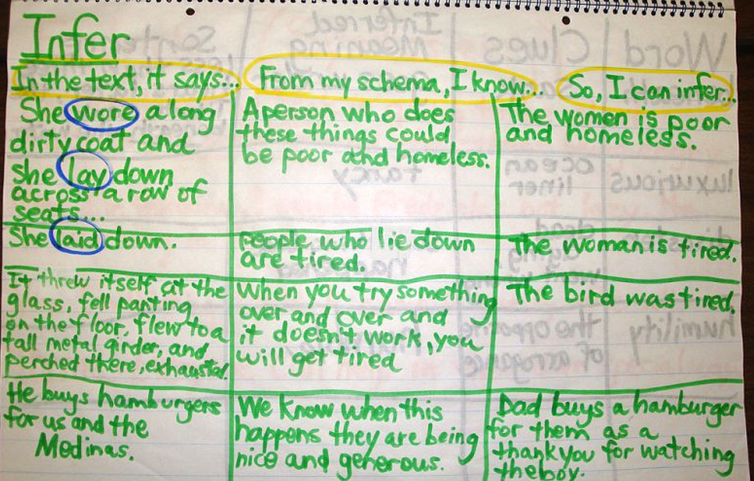 Infer
In the text, it says...
From my schema, I know...
So, I can infer...
She wore a long
dirty coat and
she lay down
across a row of
seats...
A person who does
these things could
be poor and homeless.
The women is poor
and homeless.
She laid down.
people who lie down
are tired.
The woman is tired.
It threw itself at the
glass, fell panting
on the floor, flew to a
tall metal girder, and
perched there, exhausted.
When you try something
over and over and
it doesn't work, you
will get tired
The bird was tired.
He buys hamburgers
for us and the
Medinas.
We know when this
happens they are being
nice and generous.
Dad buys a hamburger
for them as a
thank you for watching
the boy.
Word
Clues
Inferred
Meaning
luxurious
ocean
liner
fancy
humility
the opposite
of arrogance